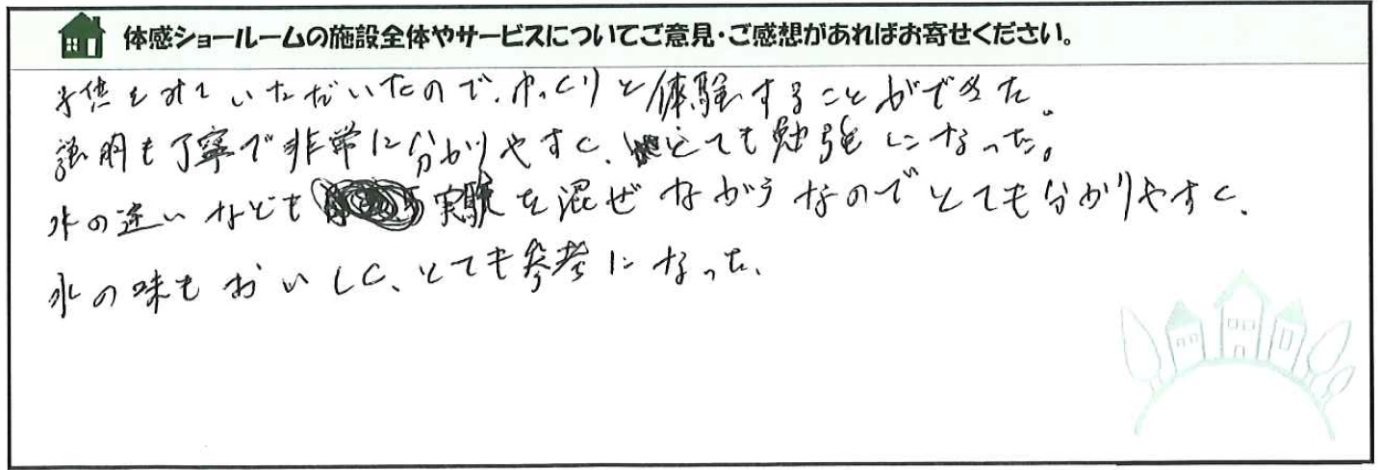 体感ショールームの施設全体やサービスについてご意見・ご感想があればお寄せください。
子供をみていただいたので、ゆっくりと体験することができた。
説明も丁寧で非常に分かりやすく、とても勉強になった。
水の違いなども実験を混ぜながらなのでとても分かりやすく、
水の味もおいしく、とても参考になった。